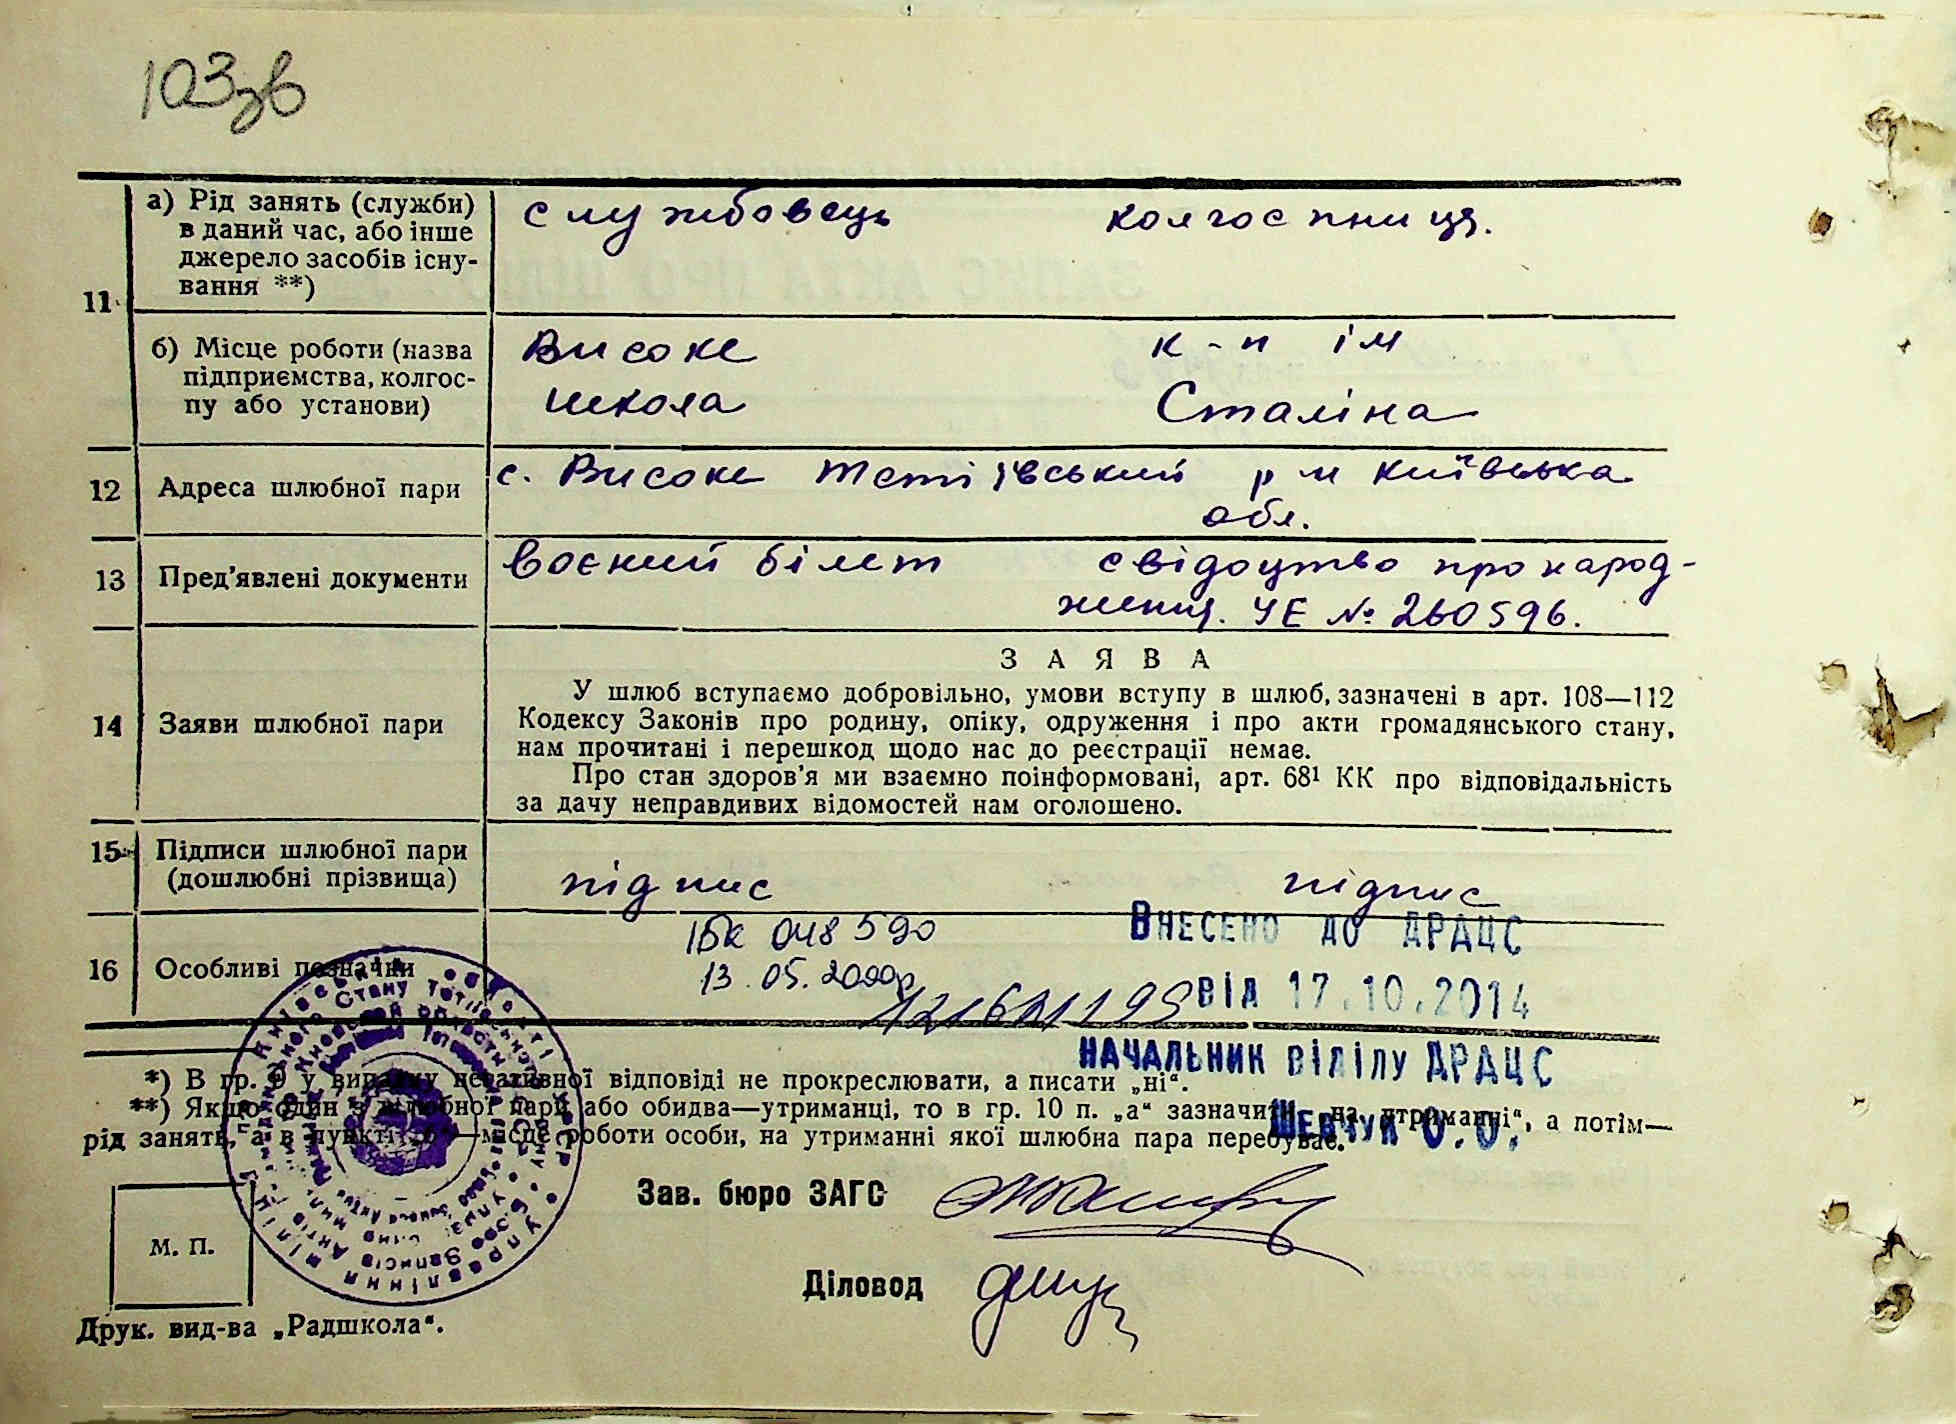 103зв
11
а) Рід занять (служби)
в даний час, або інше
джерело засобів існу-
вання **)
службовець
колгоспниця.
б) Місце роботи (назва
підприємства, колгос-
пу або установи)
Високе
школа
к-п ім
Сталіна
12
Адреса шлюбної пари
с. Високе Тетіївський р-н Київська
обл.
13
Пред’явлені документи
воєний білет
свідоцтво про народ-
ження. УЕ № 260596.
14
Заяви шлюбної пари
ЗАЯВА
У шлюб вступаємо добровільно, умови вступу в шлюб, зазначені в арт. 108—112
Кодексу Законів про родину, опіку, одруження і про акти громадянського стану,
нам прочитані і перешкод щодо нас до реєстрації немає.
Про стан здоров’я ми взаємно поінформовані, арт. 68¹ КК про відповідальність
за дачу неправдивих відомостей нам оголошено.
15
Підписи шлюбної пари
(дошлюбні прізвища)
підпис
підпис
16
Особливі позначки
ІБК 048590
13.05.2000р
ВНЕСЕНО ДО ДРАЦС
ВІД 17.10.2014
НАЧАЛЬНИК ВІДІЛУ ДРАЦС
ШЕВЧУК О.О.
*) В гр. 9 у випадку негативної відповіді не прокреслювати, а писати „ні“.
**) Якщо один з шлюбної пари або обидва—утриманці, то в гр. 10 п. „а“ зазначити „на утриманні“, а потім—
рід занять, а в пункті „б“—місце роботи особи, на утриманні якої шлюбна пара перебуває.
Зав. бюро ЗАГС
М. П.
Діловод
Друк. вид-ва „Радшкола“.